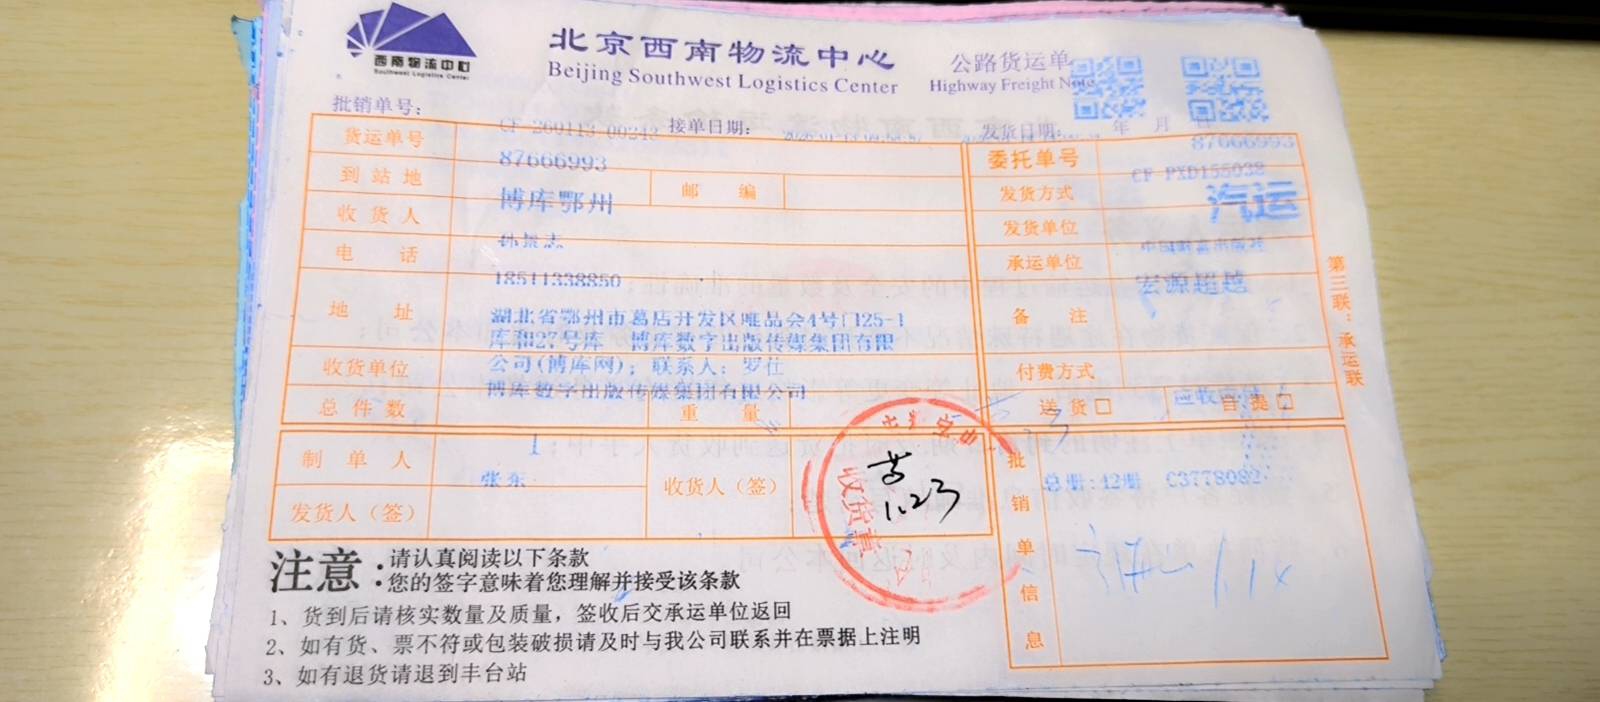 西南物流中心
Southwest Logistics Center
北京西南物流中心
Beijing Southwest Logistics Center
公路货运单
Highway Freight Note
批销单号：
CF-260113-00242
接单日期：
发货日期：
年 月 日
货运单号
87666993
委托单号
87666993
CF-PXD155038
到站地
博库鄂州
邮编
发货方式
汽运
收货人
孙景志
发货单位
电话
18511338850
承运单位
宏源超越
地址
湖北省鄂州市葛店开发区唯品会4号门25-1
库和27号库 博库数字出版传媒集团有限
公司(博库网)；联系人：罗仕
备注
收货单位
博库数字出版传媒集团有限公司
付费方式
总件数
1；
重量
送货□
自提□
制单人
张东
收货人（签）
1.23
收货章
发货人（签）
批销单信息
总册:42册 C3778082
第三联：承运联
注意：
请认真阅读以下条款
您的签字意味着您理解并接受该条款
1、货到后请核实数量及质量，签收后交承运单位返回
2、如有货、票不符或包装破损请及时与我公司联系并在票据上注明
3、如有退货请退到丰台站